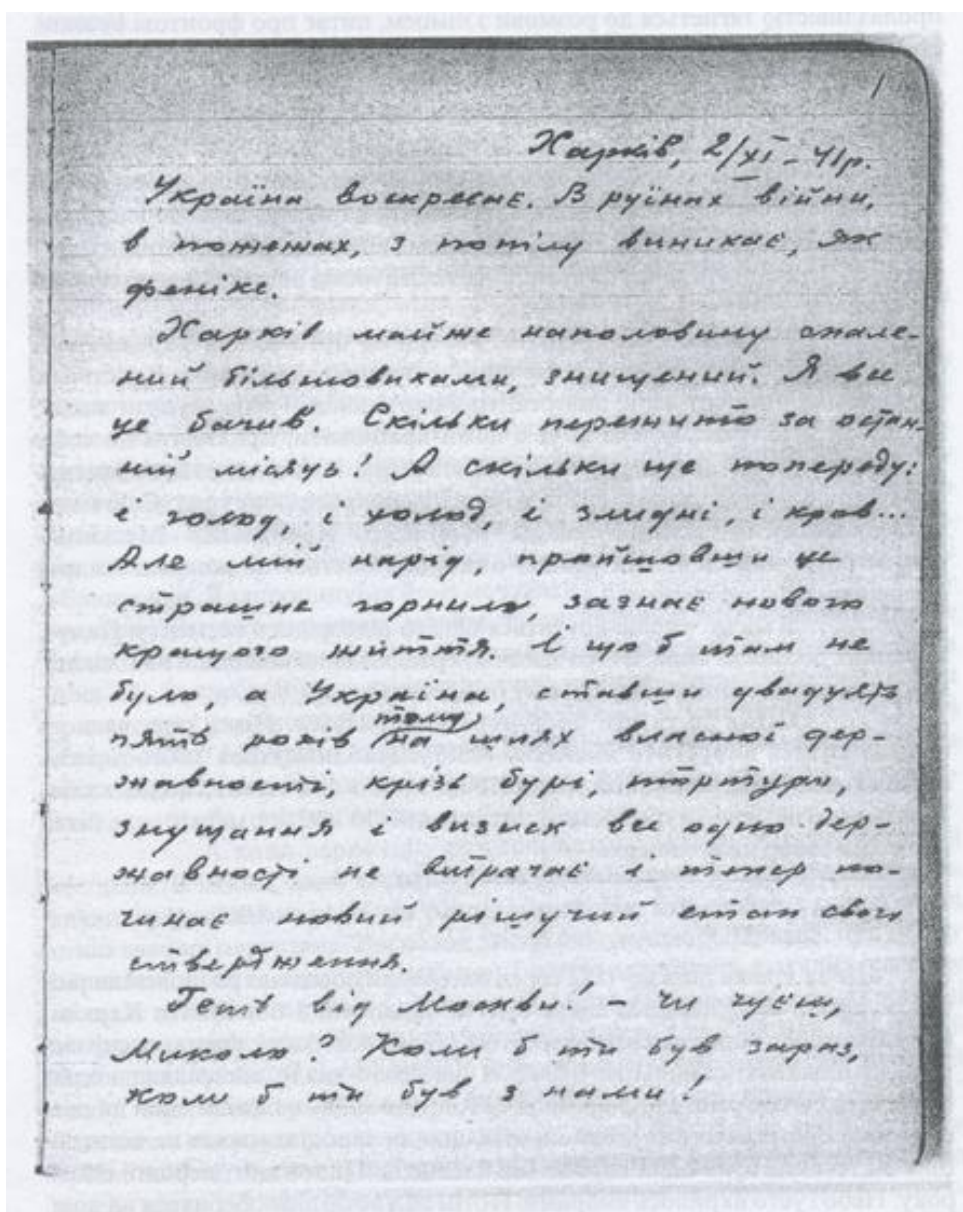 1
Харків, 2/XI – 41р.
Україна воскресає. В руїнах війни,
в пожежах, з попілу виникає, як
фенікс.
Харків майже наполовину спале-
ний більшовиками, знищений. Я все
це бачив. Скільки пережито за остан-
ній місяць! А скільки ще попереду:
і голод, і холод, і злидні, і кров...
Але мій нарід, пройшовши це
страшне горнило, зазнає нового
кращого життя. І що б там не
було, а Україна, ставши двадцять
п'ять років тому на шлях власної дер-
жавности, крізь бурі, тортури,
знущання і визиск все одно дер-
жавності не витрачає і тепер по-
чинає новий рішучий етап свого
ствердження.
"Геть від Москви!" – чи чуєш,
Миколо? Коли б ти був зараз,
коли б ти був з нами!